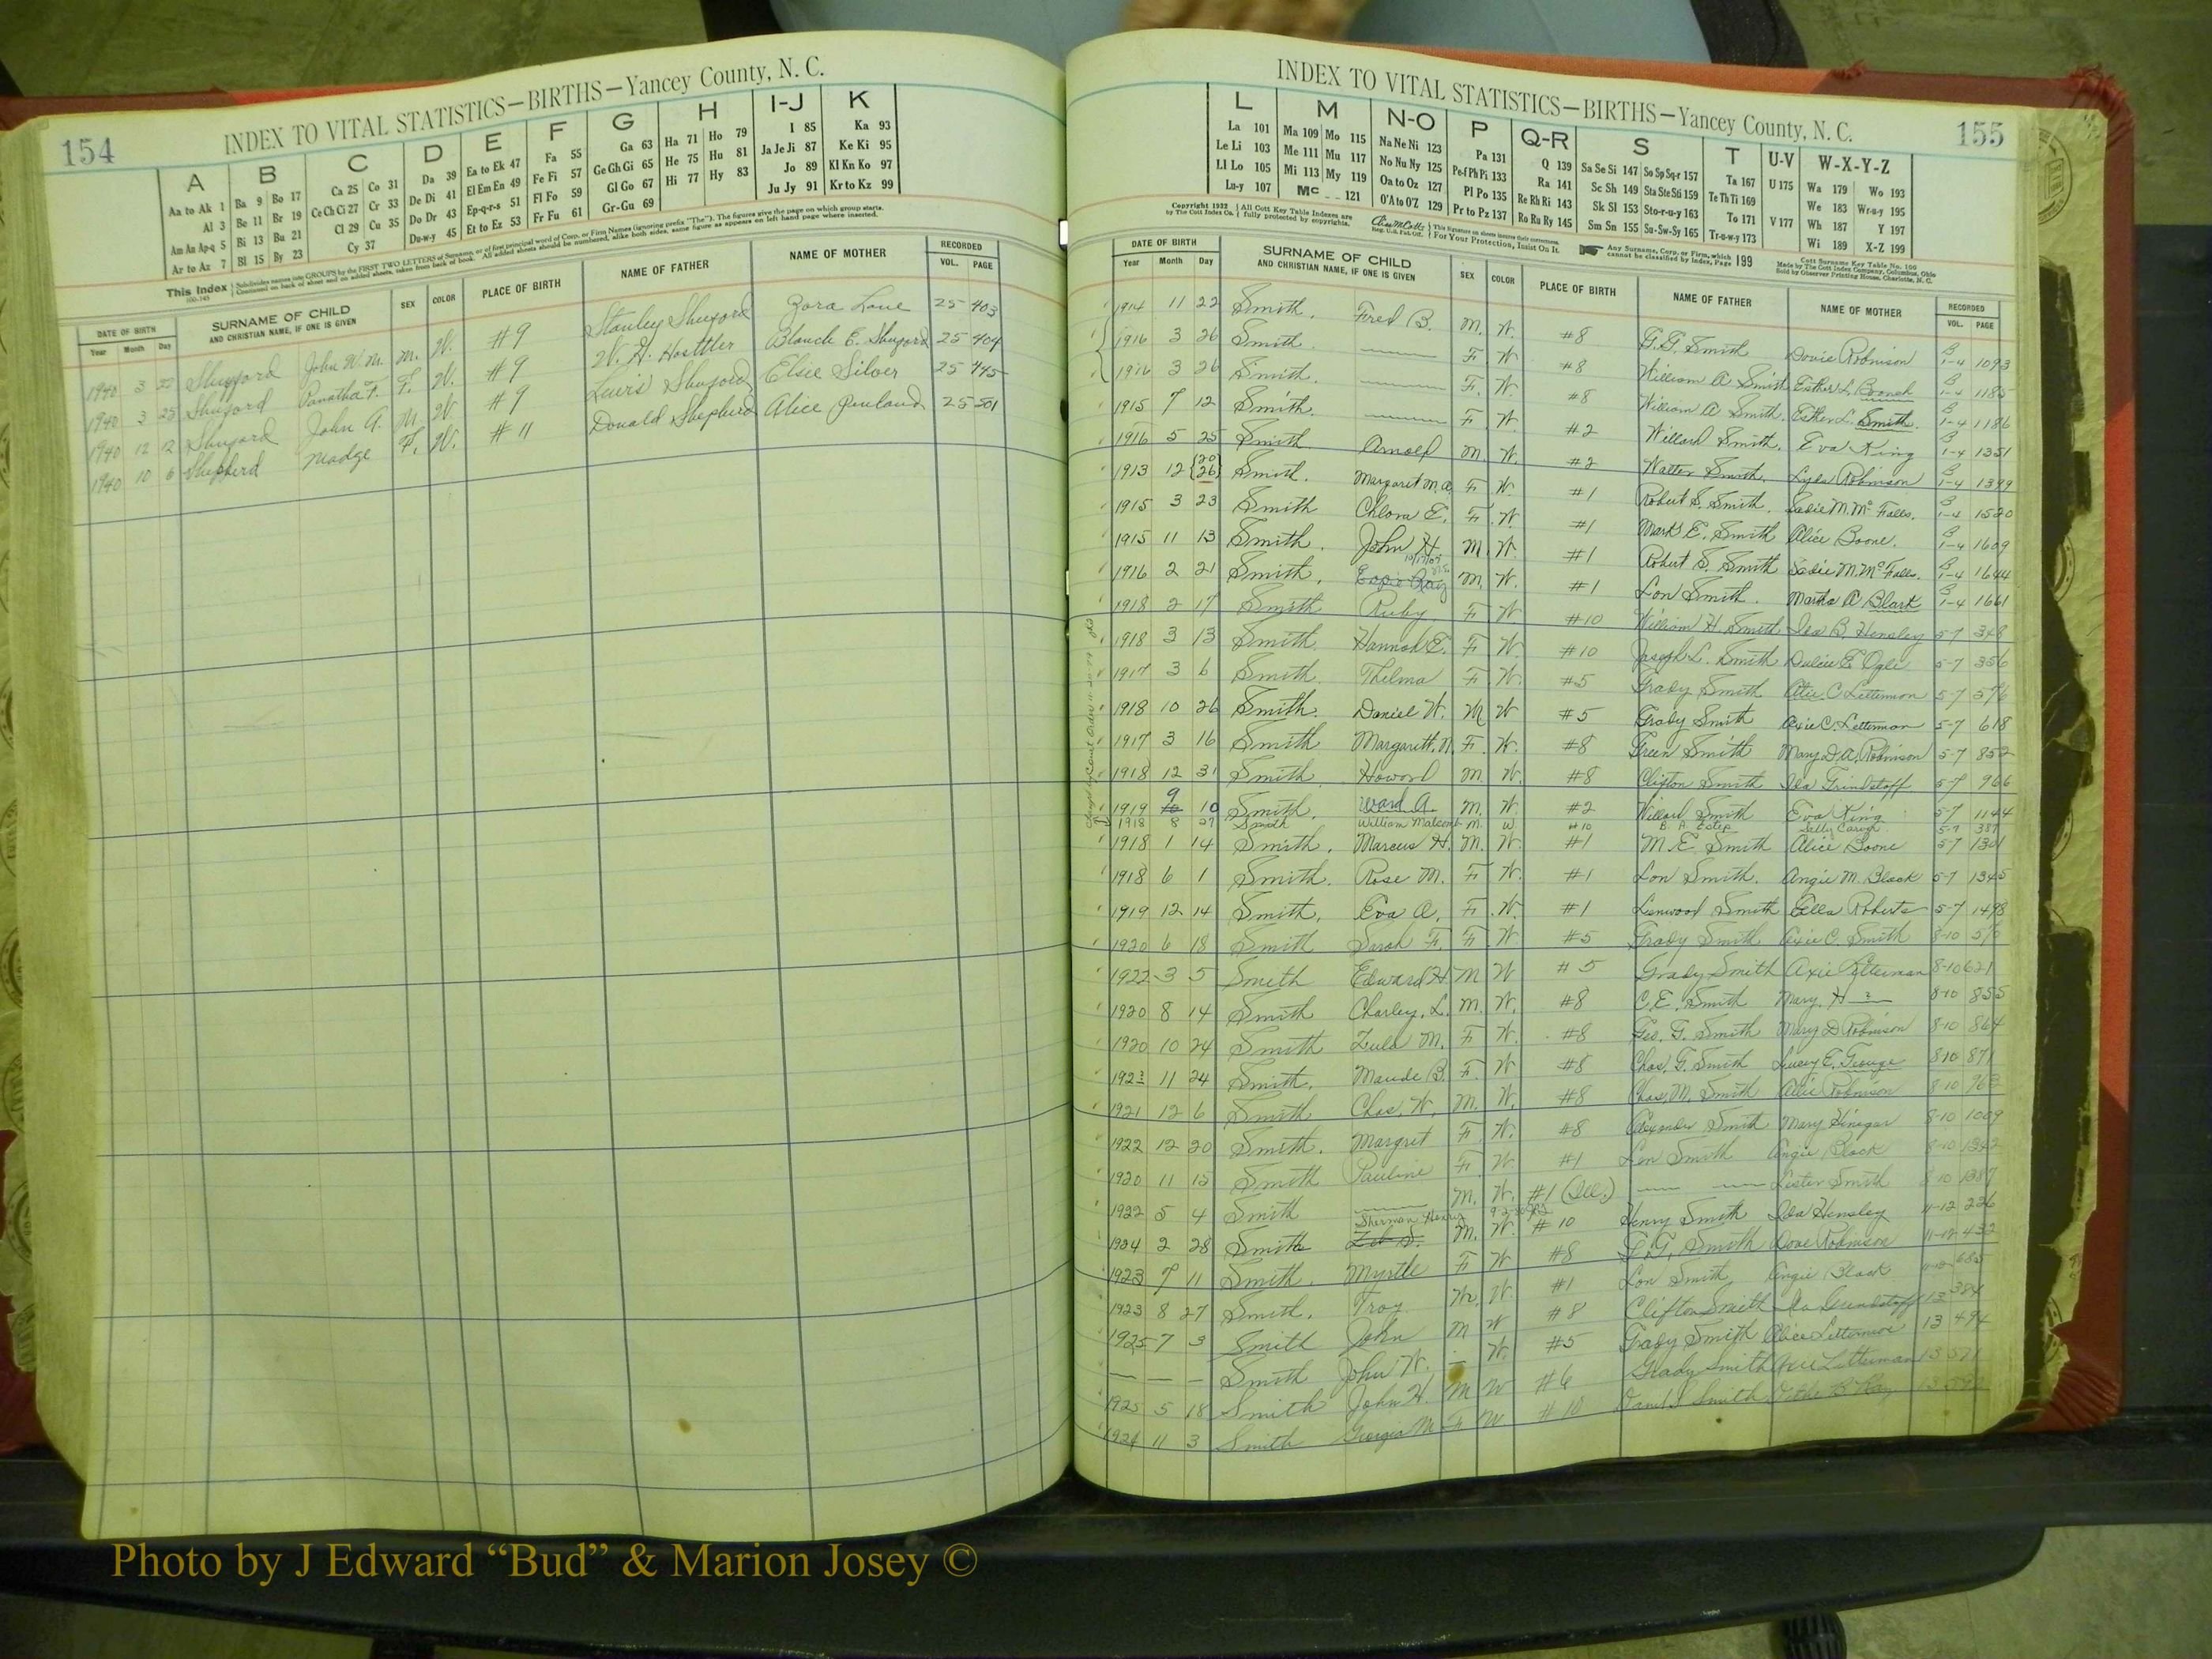 154
INDEX TO VITAL STATISTICS—BIRTHS—Yancey County, N. C.
A B C D E F G H I-J K
Aa to Ak 1 Ba 9 Bo 17 Ca 25 Co 31 Da 39 Ea to Ek 47 Fa 55 Ga 63 Ha 71 Ho 79 I 85 Ka 93
Al 3 Be 11 Br 19 Ce Ch Ci 27 Cr 33 De Di 41 El Em En 49 Fe Fi 57 Ge Gh Gi 65 He 75 Hu 81 Ja Je Ji 87 Ke Ki 95
Am An Ap-q 5 Bi 13 Bu 21 Cl 29 Cu 35 Do Dr 43 Ep-q-r-s 51 Fl Fo 59 Gl Go 67 Hi 77 Hy 83 Jo 89 Kl Kn Ko 97
Ar to Az 7 Bl 15 By 23 Cy 37 Du-w-y 45 Et to Ez 53 Fr Fu 61 Gr-Gu 69 Ju Jy 91 Kr to Kz 99
This Index Subdivides names into GROUPS by the FIRST TWO LETTERS of Surname, or of first principal word of Corp. or Firm Names (ignoring prefix "The"). The figures give the page on which group starts.
Continued on back of sheet and on added sheets, taken from back of book. All added sheets should be numbered, alike both sides, same figure as appears on left hand page where inserted.
DATE OF BIRTH SURNAME OF CHILD SEX COLOR PLACE OF BIRTH NAME OF FATHER NAME OF MOTHER RECORDED
Year Month Day AND CHRISTIAN NAME, IF ONE IS GIVEN VOL. PAGE
1940 3 22 Shuford John W. M. M. W. #9 Stanley Shuford Zora Lowe 25 403
1940 3 25 Shuford F. W. #9 W. H. Blanch E. Shuford 25 404
1940 12 12 Shuford John A. M. W. #9 Lewis Shuford Elsie Silver 25 445
1940 10 6 Shepherd Madge F. W. #11 Donald Shepherd Alice Penland 25 501
INDEX TO VITAL STATISTICS—BIRTHS—Yancey County, N. C.
155
L M N-O P Q-R S T U-V W-X-Y-Z
La 101 Ma 109 Mo 115 Na Ne Ni 123 Pa 131 Q 139 Sa Se Si 147 So Sp Sq-r 157 Ta 167 U 175 Wa 179 Wo 193
Le Li 103 Me 111 Mu 117 No Nu Ny 125 Pe-f Ph Pi 133 Ra 141 Sc Sh 149 Sta Ste Sti 159 Te Th Ti 169 We 183 Wr-u-y 195
Ll Lo 105 Mi 113 My 119 Oa to Oz 127 Pl Po 135 Re Rh Ri 143 Sk Sl 153 Sto-r-u-y 163 To 171 V 177 Wh 187 Y 197
Lu-y 107 Mc 121 O'A to O'Z 129 Pr to Pz 137 Ro Ru Ry 145 Sm Sn 155 Su-Sw-Sy 165 Tr-u-w-y 173 Wi 189 X-Z 199
Copyright 1932 by The Cott Index Co. All Cott Key Table Indexes are fully protected by copyrights. For Your Protection, Insist On It. Any Surname, Corp. or Firm, which cannot be classified by Index, Page 199
Cott Surname Key Table No. 100 Made by The Cott Index Company, Columbus, Ohio Sold by Observer Printing House, Charlotte, N. C.
DATE OF BIRTH SURNAME OF CHILD SEX COLOR PLACE OF BIRTH NAME OF FATHER NAME OF MOTHER RECORDED
Year Month Day AND CHRISTIAN NAME, IF ONE IS GIVEN VOL. PAGE
1914 11 22 Smith, Fred B. M. W. #8 G. G. Smith Dovie Robinson B 1-4 1093
1916 3 26 Smith F W #8 William A Smith Esther L. B 1-4 1185
1916 3 26 Smith. F. W. #8 William A Smith. Esther L. Smith. B 1-4 1186
1915 7 12 Smith. F W. #2 Willard Smith. Eva King B 1-4 1351
1916 5 25 Smith Arnold M. W. #2 Walter Smith. Robinson B 1-4 1399
1913 12 20 26 Smith. Margaret M. A. F W. #1 Robert S. Smith. Sadie M. McFalls. B 1-4 1520
1915 3 23 Smith Chlora E. F. W. #1 Mark E. Smith Alice Boone. B 1-4 1609
1915 11 13 Smith. John H. M. W. #1 Robert S. Smith Sadie M. McFalls. B 1-4 1644
1916 2 21 Smith. M. W. #1 Lon Smith. Martha A Black B 1-4 1661
1918 2 17 Smith Ruby F W #10 William H Smith Ida B. Hensley 5-7 348
1918 3 13 Smith. Hannah E. F W. #10 Joseph L. Smith Dulcie E Ogle 5-7 356
1917 3 6 Smith. Thelma F W. #5 Grady Smith C Letterman 5-7 576
1918 10 26 Smith. Daniel W. M W #5 Grady Smith Axie C. Letterman 5-7 618
1917 3 16 Smith Margarett. F. W. #8 Green Smith Mary D. A. Robinson 5-7 852
1918 12 31 Smith Howard M. W. #8 Clifton Smith Ida Grindstaff 5-7 966
1919 9 10 Smith. Ward A. M. W #2 Willard Smith Eva King 5-7 1144
1918 8 27 Smith William Malcomb M. W #10 B. A. Estep 5-7 387
1918 1 14 Smith. Marcus H. M. W. #1 M. E. Smith Alice Boone 5-7 1301
1918 6 1 Smith. Rose M. F W. #1 Lon Smith. Angie M. Black 5-7 1345
1919 12 14 Smith. Eva A. F. W. #1 Linwood Smith Ella Roberts 5-7 1498
1920 6 18 Smith Sarah F. F W #5 Grady Smith Axie C. Smith 8-10
1922 3 5 Smith Edward H M W #5 Grady Smith Axie Letterman 8-10 621
1920 8 14 Smith Charley, L. M. W. #8 C. E. Smith Mary H ? 8-10 855
1920 10 24 Smith Zula M. F W. #8 Geo. G. Smith Mary D Robinson 8-10 864
192 11 24 Smith. Maude B. F. W #8 Chas. G. Smith Lucy E. George 8-10 871
1921 12 6 Smith Chas. W. M. W. #8 Chas. M. Smith Robinson 8-10
1922 12 20 Smith. Margret F. W. #8 Alexander Smith Mary 8-10 1009
1920 11 15 Smith Pauline F W #1 Lon Smith Angie Black 8-10 1342
1922 5 4 Smith M. W. #1 (Ill.) Lester Smith 8-10 1387
1924 2 28 Smith Sherman Henry M. W. #10 Henry Smith Ida Hensley 11-12 226
1923 7 11 Smith. Myrtle F W #8 G. G. Smith Dove Robinson 11-12 432
1923 8 27 Smith. Troy M. W. #1 Lon Smith Angie Black 685
1925 7 3 Smith John M W #8 Clifton Smith Ida Grindstaff 13 384
— — — Smith John W. — W. #5 Grady Smith Alice Letterman 13 494
1925 5 18 Smith John H. M W #6 Grady Smith Axie Letterman 13
1924 11 3 Smith Georgia M F W #10 Smith Ray 13
Photo by J Edward “Bud” & Marion Josey ©